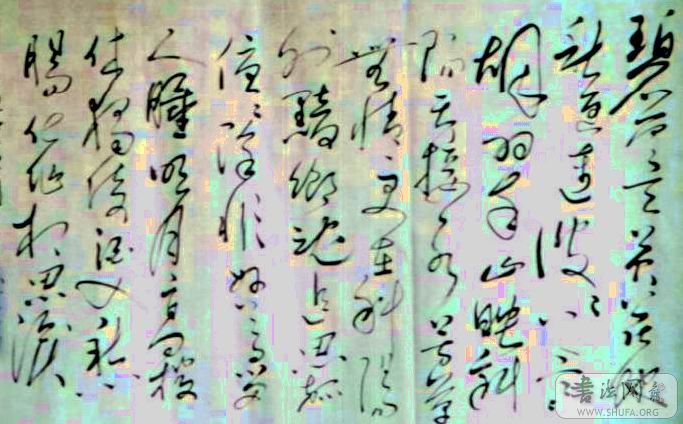 碧云天黄葉地
秋色連波波上寒
烟翠山映斜
陽天接水芳草
無情更在斜陽
外黯鄉魂追思旅
夜夜除非好夢留
人睡明月高樓
休獨倚酒入愁
腸化作相思淚
书法网
WWW.SHUFA.ORG